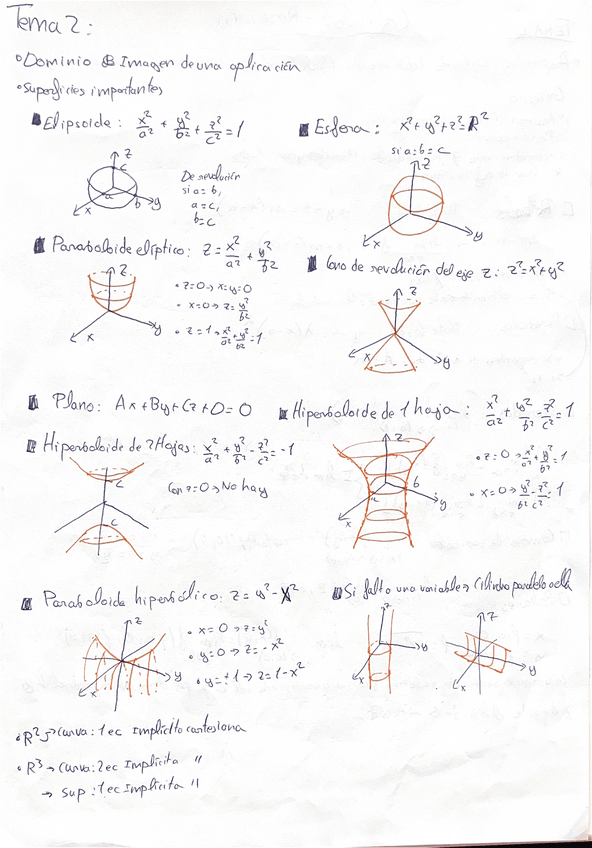 Tema 2:
• Dominio e Imagen de una aplicación
• Superficies importantes
Elipsoide: x²/a² + y²/b² + z²/c² = 1
z
c
a
b
x
y
De revolución
si a = b,
a = c,
b = c
Esfera: x² + y² + z² = R²
si a = b = c
z
x
y
Paraboloide elíptico: z = x²/a² + y²/b²
z
x
y
• z=0 → x=y=0
• x=0 → z = y²/b²
• z=1 → x²/a² + y²/b² = 1
Cono de revolución del eje z: z² = x² + y²
z
x
y
Plano: Ax + By + Cz + D = 0
Hiperboloide de 1 hoja: x²/a² + y²/b² - z²/c² = 1
z
a
b
x
y
• z=0 → x²/a² + y²/b² = 1
• x=0 → y²/b² - z²/c² = 1
Hiperboloide de 2 Hojas: x²/a² + y²/b² - z²/c² = -1
c
c
Con z=0 → No hay
Paraboloide hiperbólico: z = y² - x²
z
x
y
• x=0 → z=y²
• y=0 → z=-x²
• y=±1 → z=1-x²
Si falta una variable → Cilindro paralelo a ella
z
x
y
z
x
y
• R² → Curva: 1 ec Implícita cartesiana
• R³ → Curva: 2 ec Implícita "
→ sup: 1 ec Implícita "